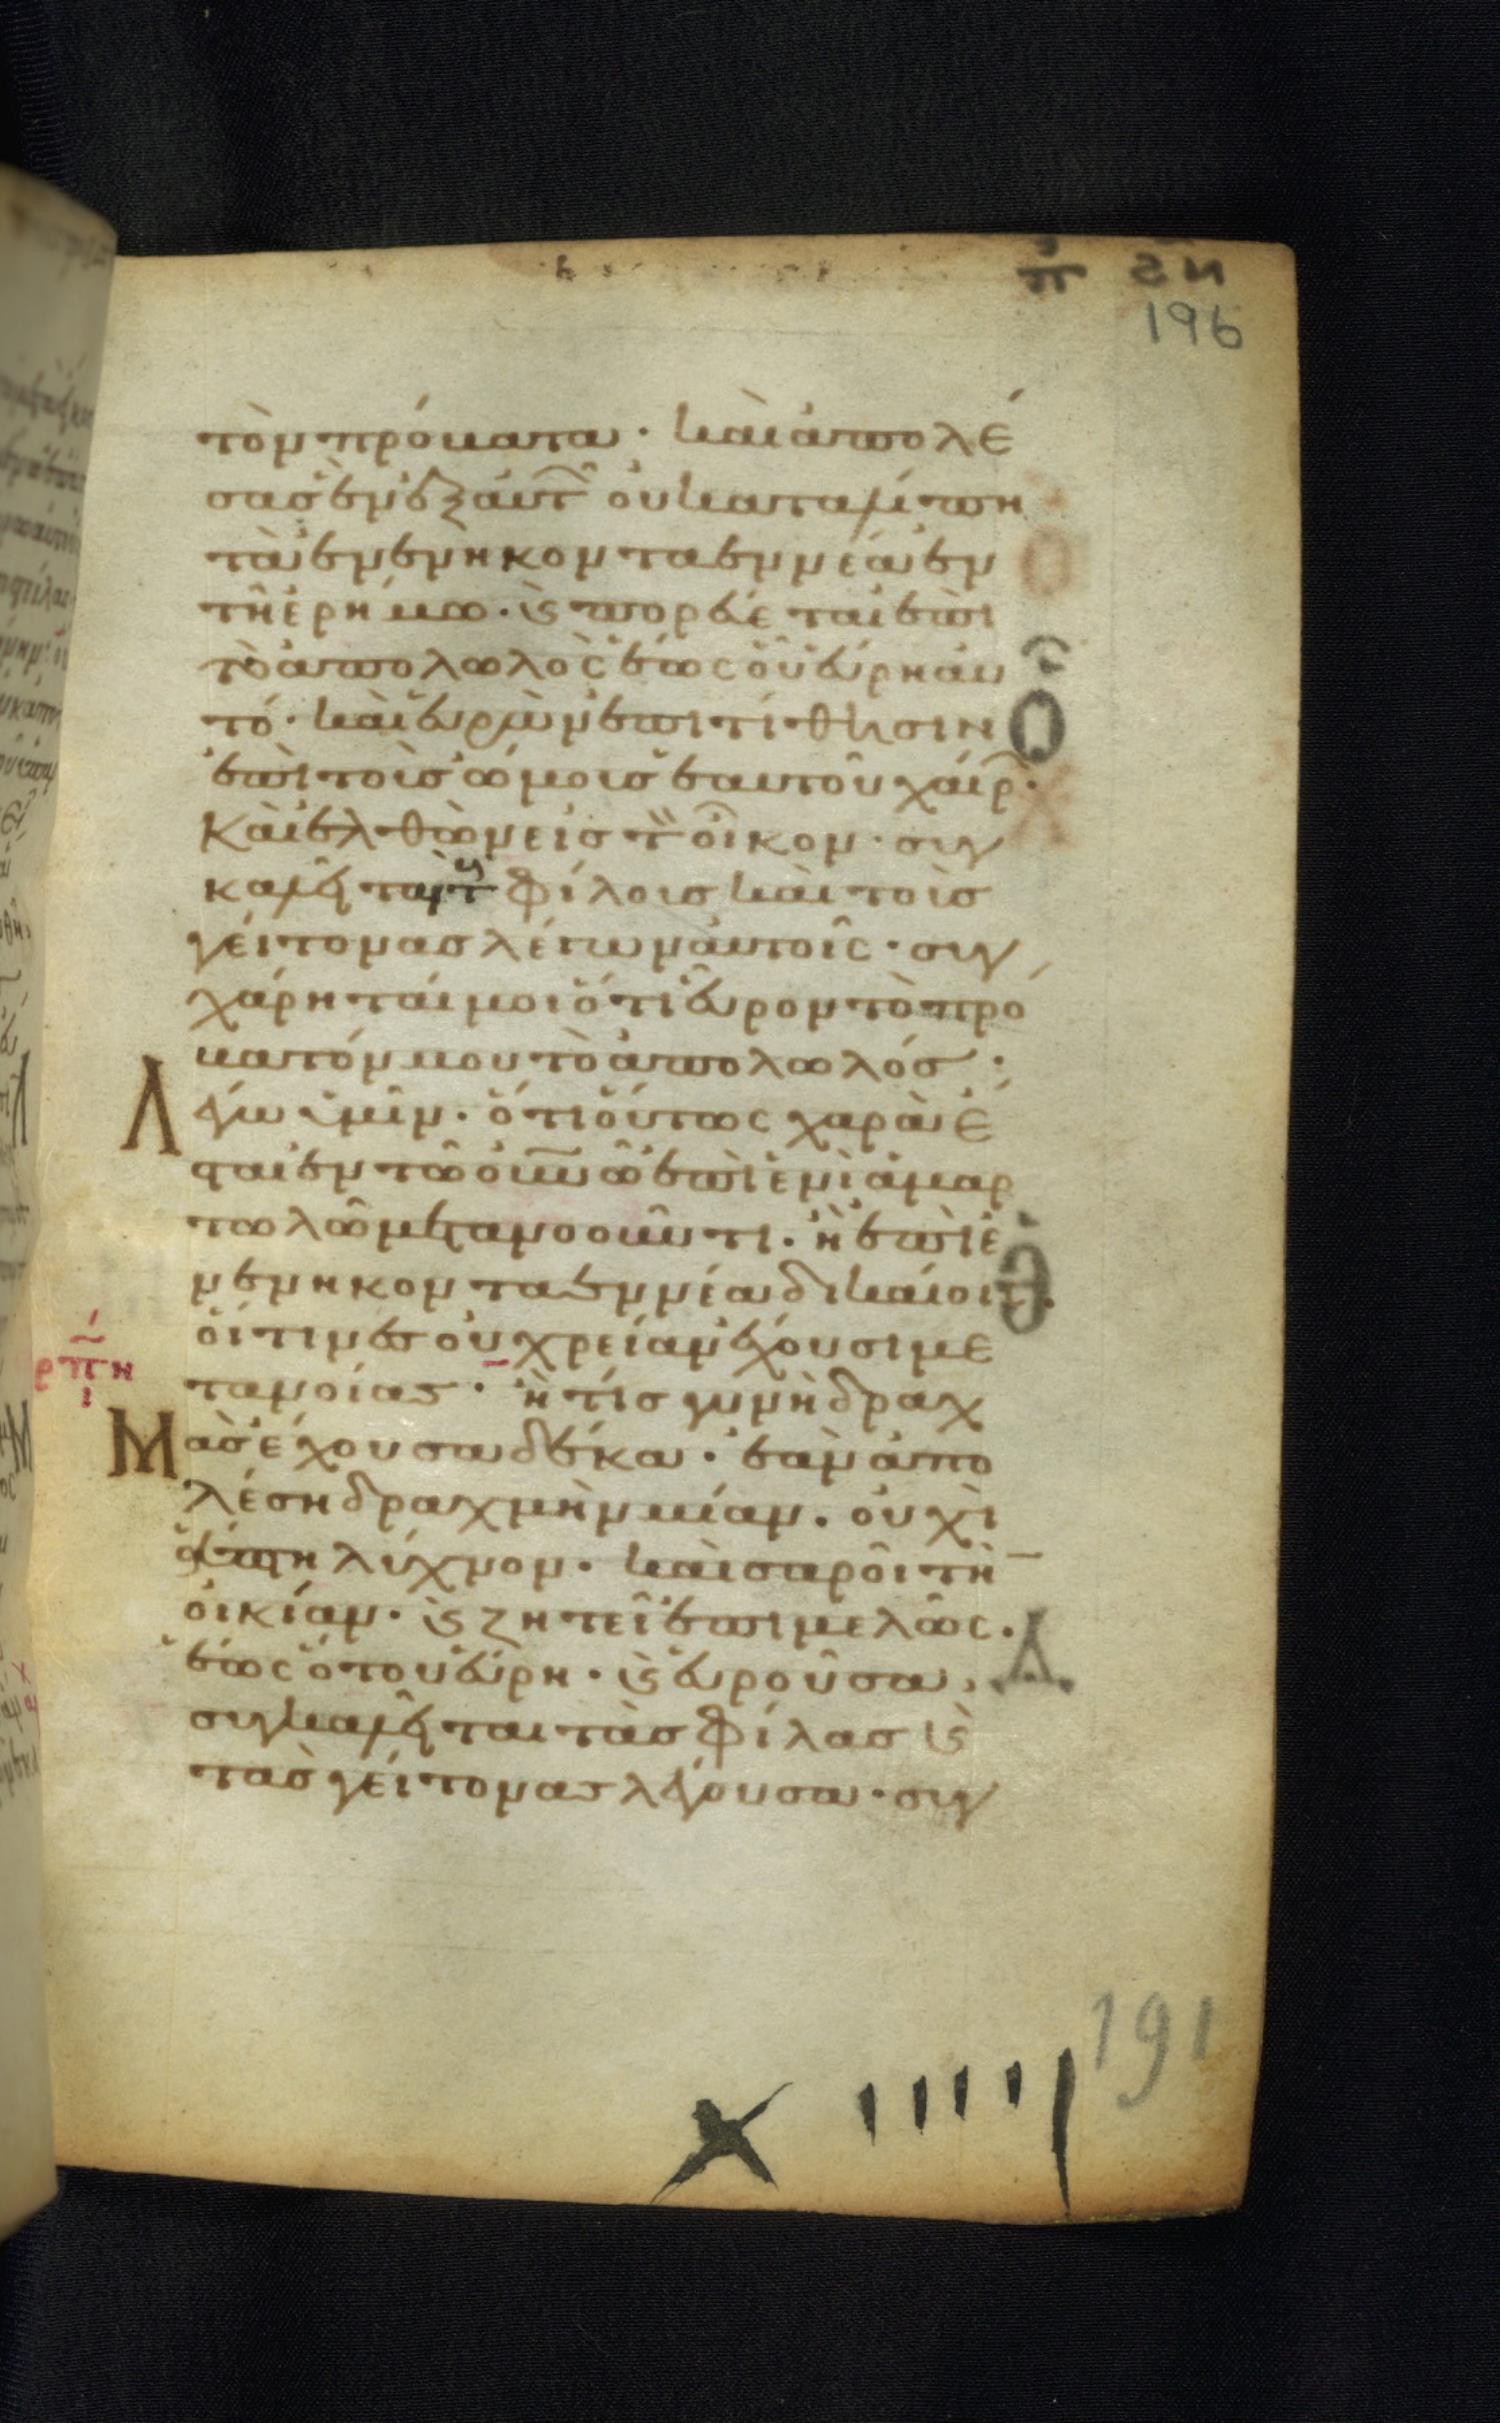 196
τὸν πρόβατα · καὶ ἀπολέ
σασ ἐν ἐξ αὐτ ου καταλίπη
τὰ ἐνενηκονταεννέα ἐν
τῆ ἐρήμω · ϗ πορεύεται ἐπὶ
τὸ ἀπολωλὸς ἕως οὗ εὕρη αὐ
τό · καὶ εὑρὼν ἐπιτίθησιν
ἐπὶ τοὺσ ὤμουσ ἑαυτοῦ χαίρ ·
Καὶ ἐλθὼν εἰσ τ οἶκον · συγ
καλεῖται τ φίλουσ καὶ τοὺσ
γείτονασ λέγων αὐτοῖς · συγ
χάρηταί μοι ὅτι εὗρον τὸ πρό
βατόν μου τὸ ἀπολωλόσ ·
Λέγω ὑμῖν · ὅτι οὕτως χαρὰ ἔ
σται ἐν τῶ οὐνῶ ἐπὶ ἑνὶ ἁμαρ
τωλῶ μετανοοῦντι · ἢ ἐπὶ ἐ
νενηκονταεννέα δικαίοισ ·
οἵτινεσ οὐ χρείαν ἔχουσι με
τανοίασ · ἢ τίσ γυνὴ δραχ
Μὰσ ἔχουσα δέκα · ἐὰν ἀπο
λέση δραχμὴν μίαν · οὐχὶ
ἅπτη λύχνον · καὶ σαροῖ τὴ
οἰκίαν · ϗ ζητεῖ ἐπιμελῶς ·
ἕως ὅτου εὕρη · ϗ εὑροῦσα ·
συγκαλεῖται τὰσ φίλασ ϗ
τὰσ γείτονασ λέγουσα · συγ
ρπη
ι
191